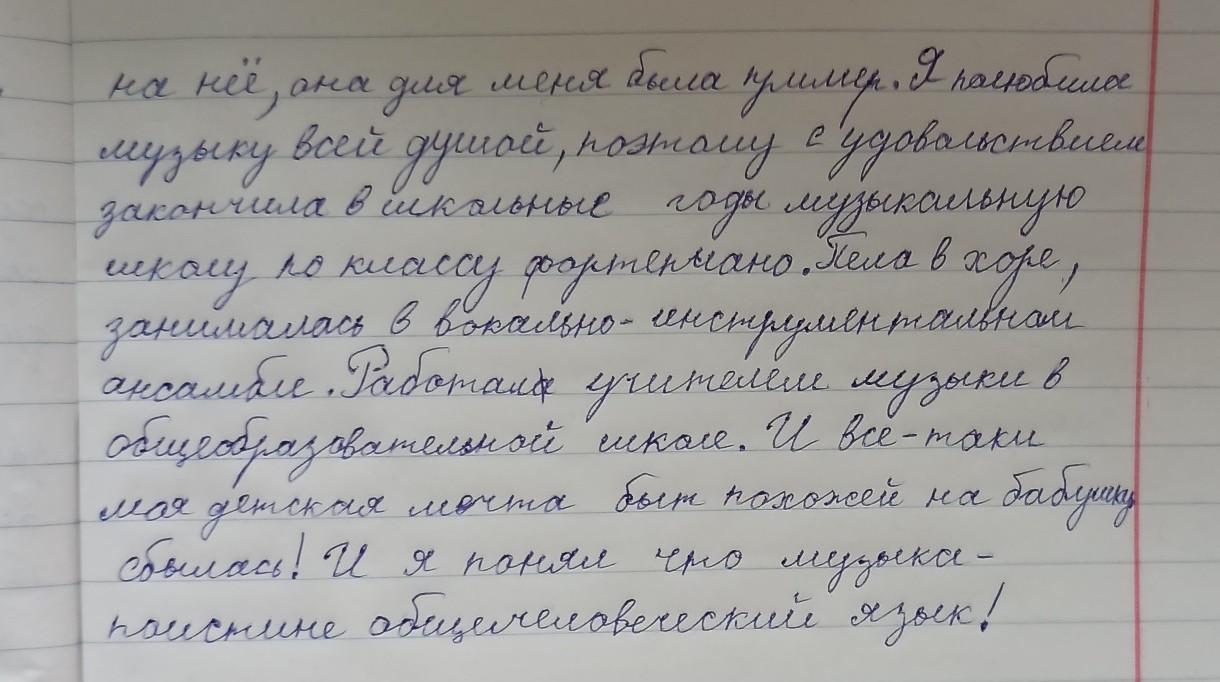 на неё, она для меня была пример. Я полюбила
музыку всей душой, поэтому с удовольствием
закончила в школьные годы музыкальную
школу по классу фортепиано. Пела в хоре,
занималась в вокально-инструментальном
ансамбле. Работала учителем музыки в
общеобразовательной школе. И все-таки
моя детская мечта быт похожей на бабушку
сбылась! И я понял что музыка-
поистине общечеловеческий язык!